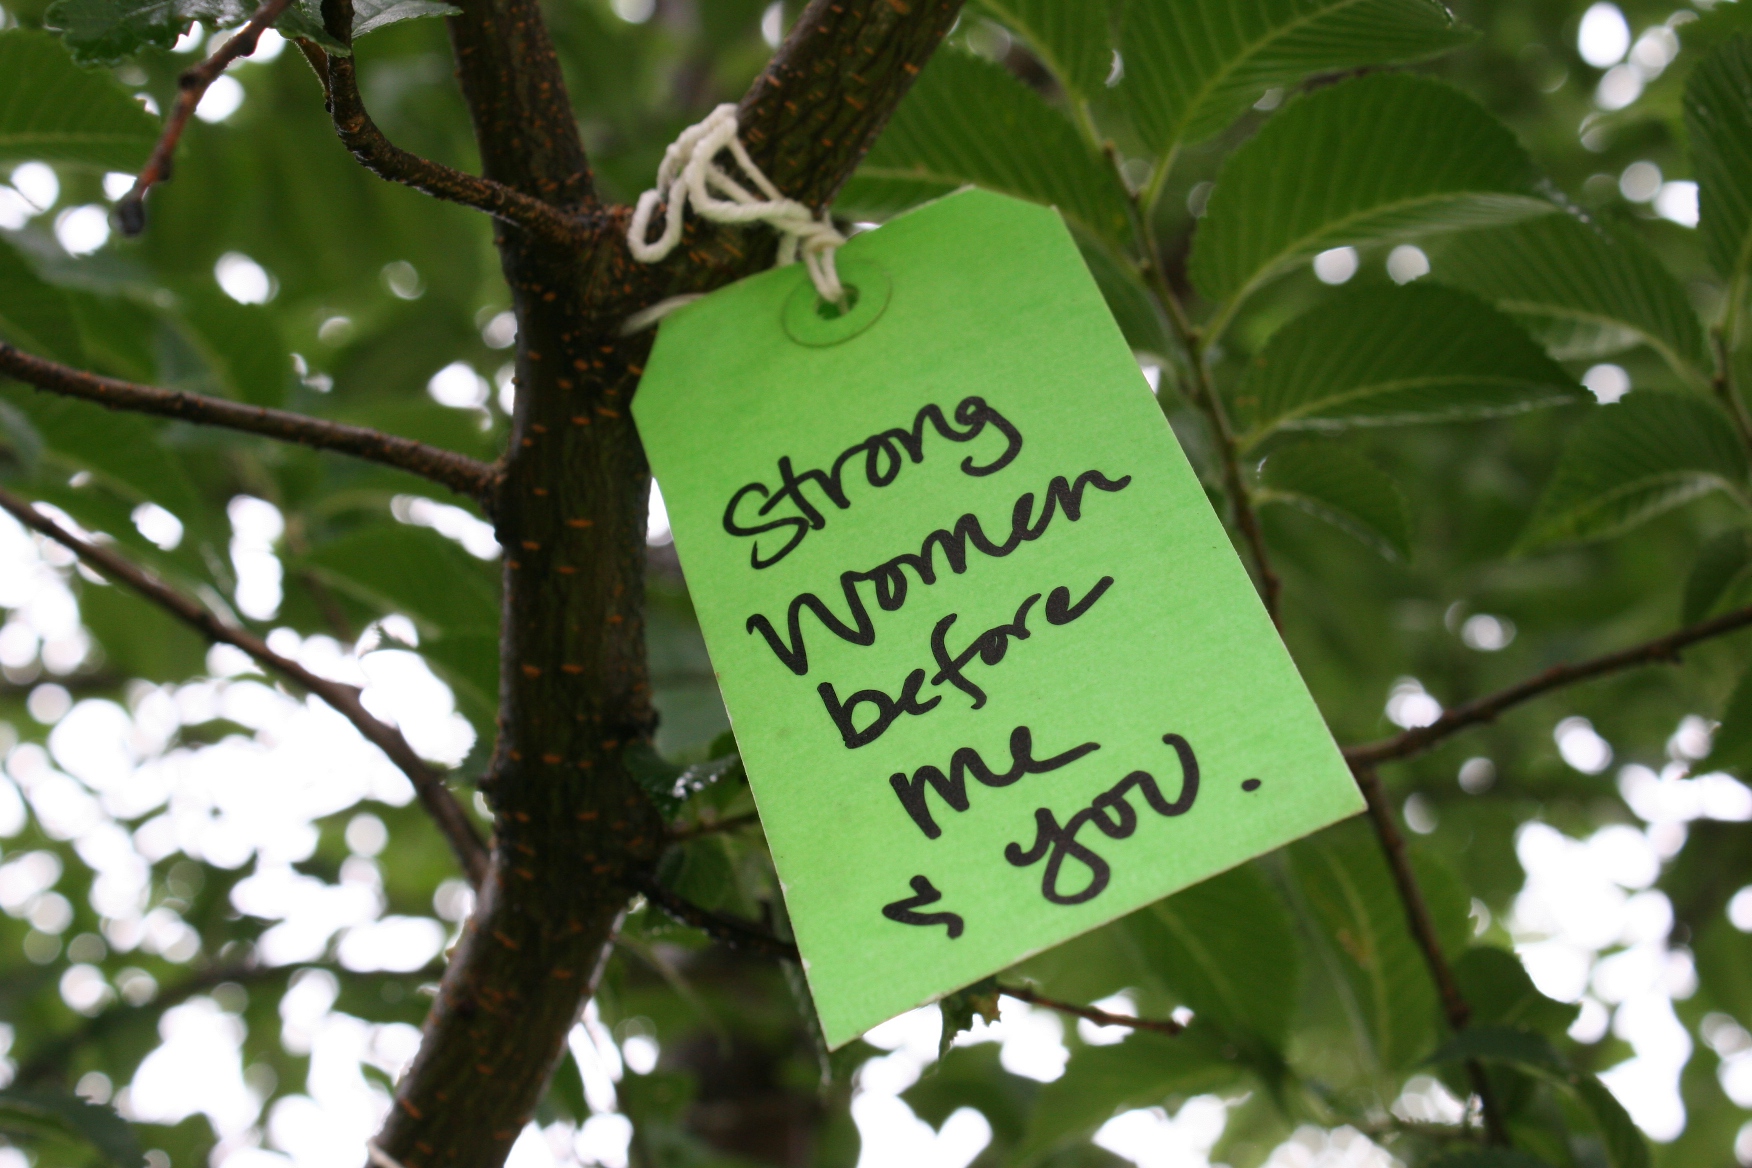 Strong
Women
before
me
& you.